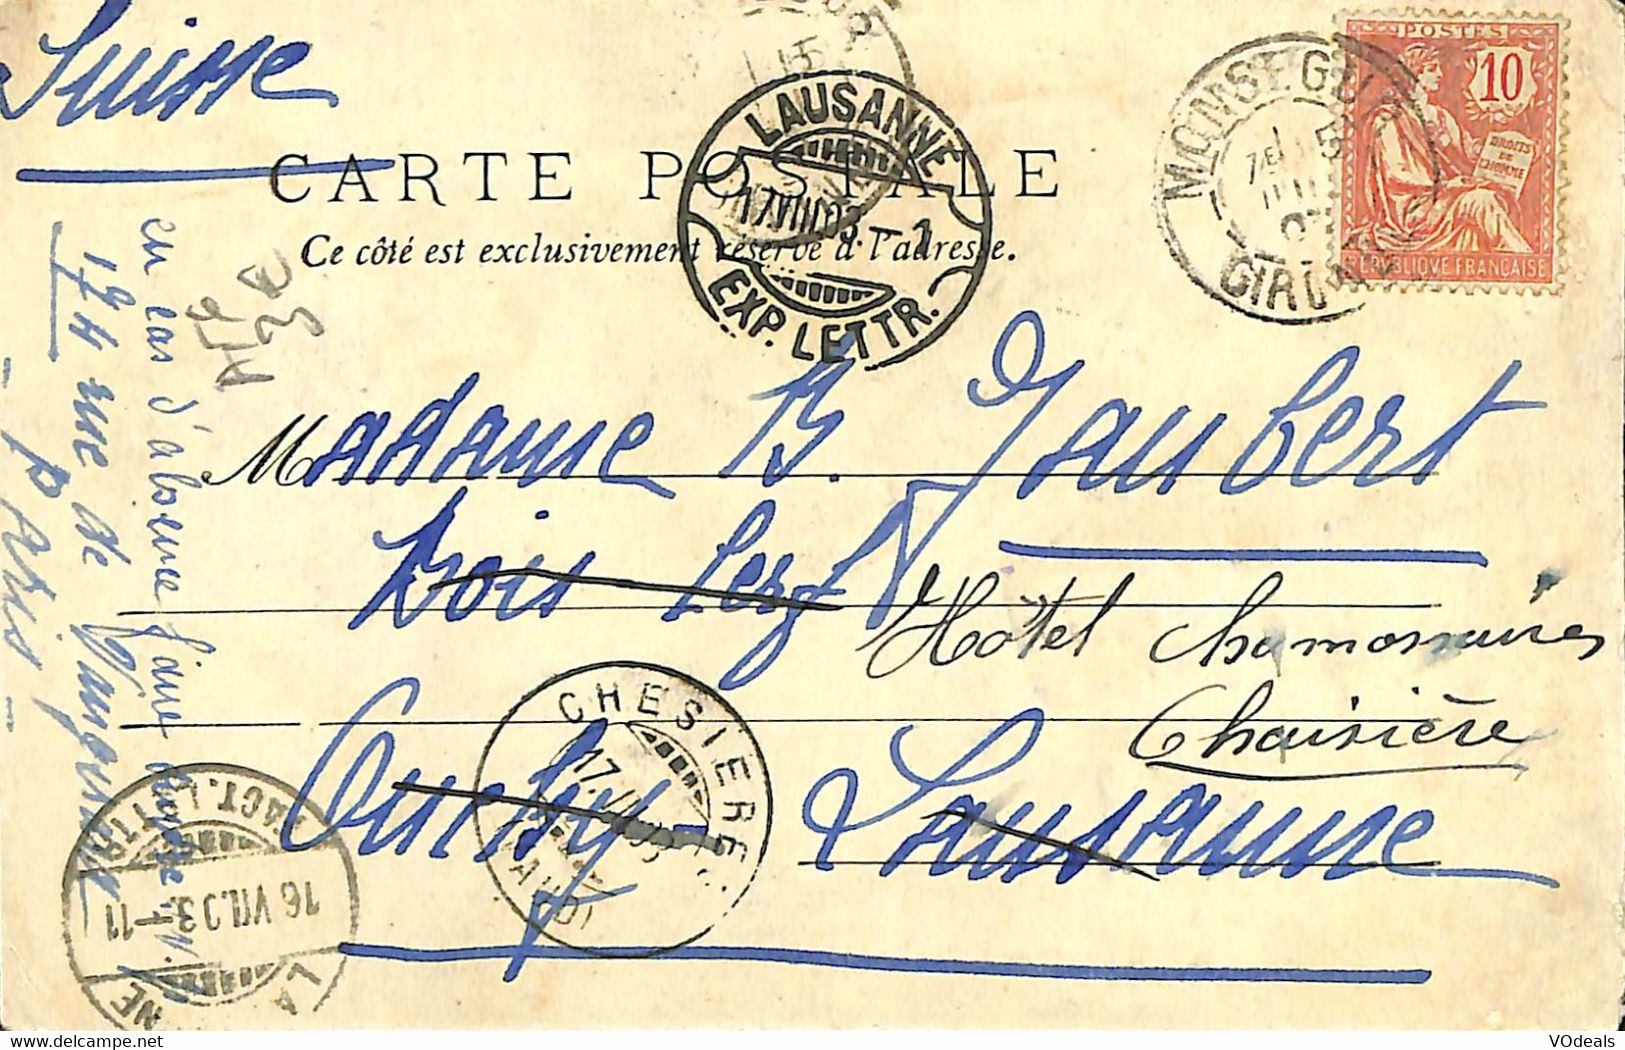 Suisse
CARTE POSTALE
Ce côté est exclusivement réservé à l'adresse.
POSTES
10
DROITS DE L'HOMME
REPUBLIQUE FRANÇAISE
MONSEGUR
GIRONDE
LAUSANNE
17.VIII.03.–1
EXP. LETTR.
Madame B. Jaubert
Bois Cerf
Hôtel Chamossaire
Chaisière
Ouchy Lausanne
CHESIERES
(VAUD)
LAUSANNE
16.VII.03–11
en cas d'absence faire
174 rue de
- Paris -
VOdeals